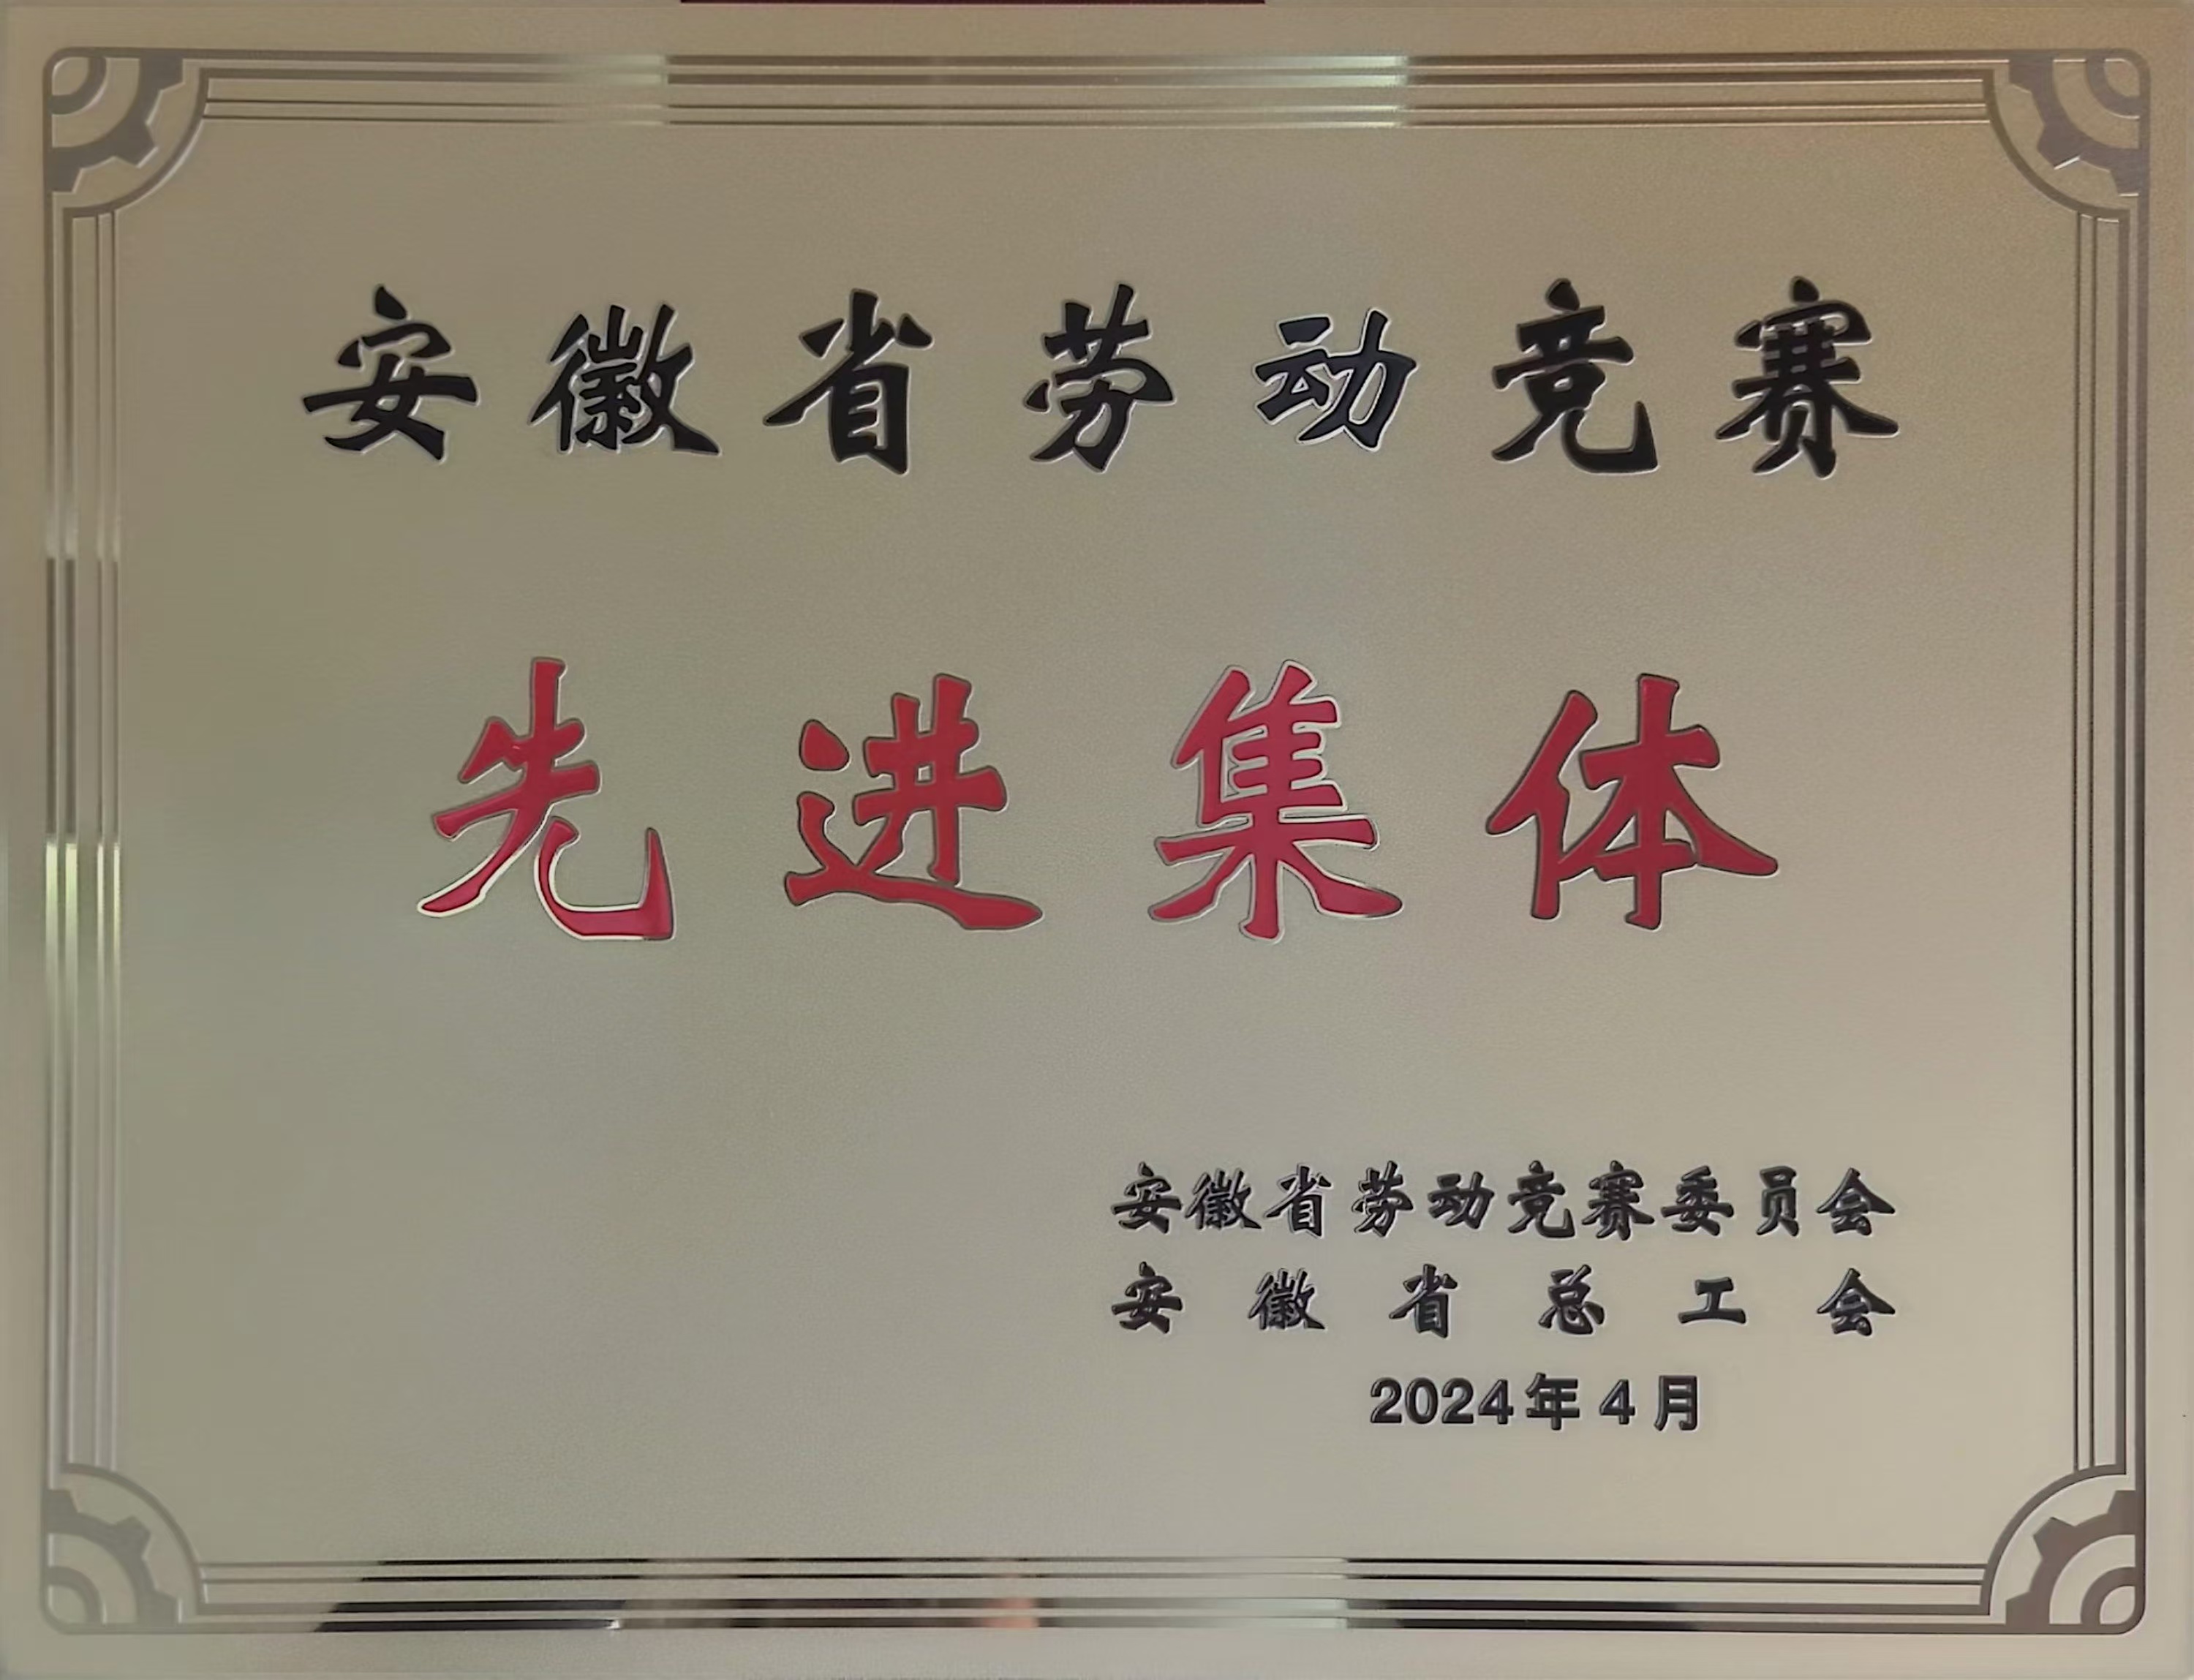 安徽省劳动竞赛
先进集体
安徽省劳动竞赛委员会
安徽省总工会
2024年4月